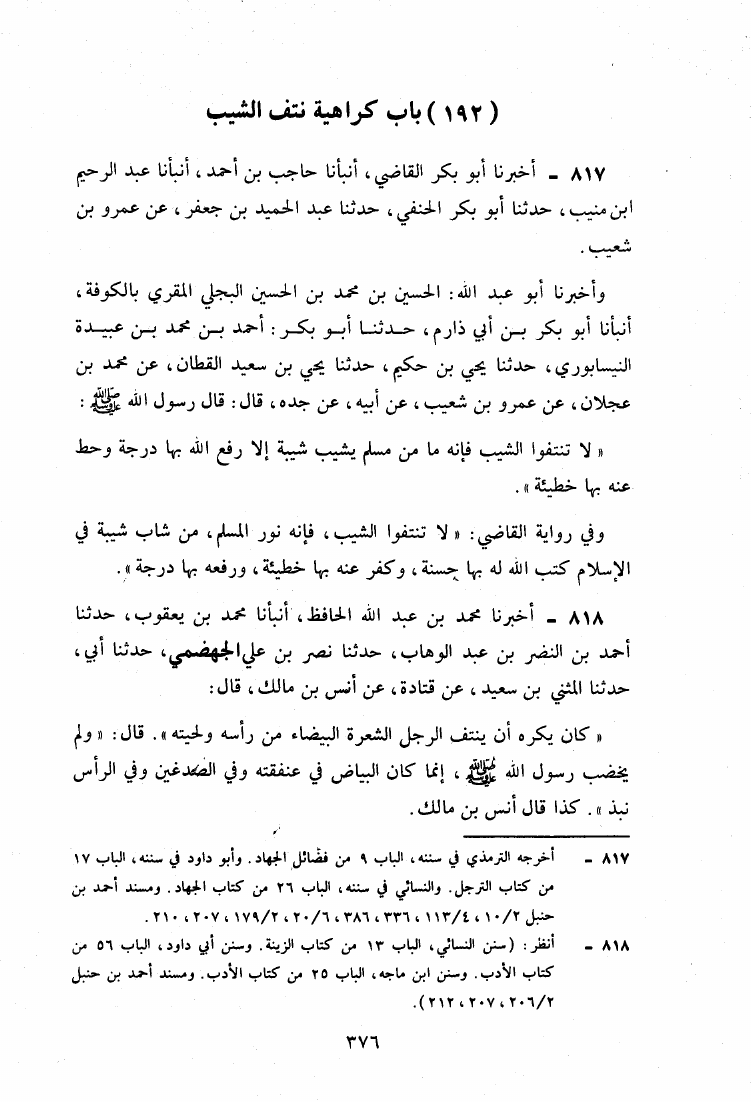 ( ١٩٢ ) باب كراهية نتف الشيب
٨١٧ ـ أخبرنا أبو بكر القاضي، أنبأنا حاجب بن أحمد، أنبأنا عبد الرحيم
ابن منيب، حدثنا أبو بكر الحنفي، حدثنا عبد الحميد بن جعفر، عن عمرو بن
شعيب.
وأخبرنا أبو عبد الله: الحسين بن محمد بن الحسين البجلي المقري بالكوفة،
أنبأنا أبو بكر بن أبي ذارم، حدثنا أبو بكر: أحمد بن محمد بن عبيدة
النيسابوري، حدثنا يحي بن حكيم، حدثنا يحي بن سعيد القطان، عن محمد بن
عجلان، عن عمرو بن شعيب، عن أبيه، عن جده، قال: قال رسول الله ﷺ:
« لا تنتفوا الشيب فإنه ما من مسلم يشيب شيبة إلا رفع الله بها درجة وحط
عنه بها خطيئة ».
وفي رواية القاضي: « لا تنتفوا الشيب، فإنه نور المسلم، من شاب شيبة في
الإسلام كتب الله له بها حسنة، وكفر عنه بها خطيئة، ورفعه بها درجة ».
٨١٨ ـ أخبرنا محمد بن عبد الله الحافظ، أنبأنا محمد بن يعقوب، حدثنا
أحمد بن النضر بن عبد الوهاب، حدثنا نصر بن علي الجهضمي، حدثنا أبي،
حدثنا المثني بن سعيد، عن قتادة، عن أنس بن مالك، قال:
« كان يكره أن ينتف الرجل الشعرة البيضاء من رأسه ولحيته ». قال: « ولم
يخضب رسول الله ﷺ، إنما كان البياض في عنفقته وفي الصدغين وفي الرأس
نبذ ». كذا قال أنس بن مالك.
٨١٧ ـ أخرجه الترمذي في سننه، الباب ٩ من فضائل الجهاد. وأبو داود في سننه، الباب ١٧
من كتاب الترجل. والنسائي في سننه، الباب ٢٦ من كتاب الجهاد. ومسند أحمد بن
حنبل ١٠/٢، ١١٣/٤، ٣٣٦، ٣٨٦، ٢٠/٦، ١٧٩/٢، ٢٠٧، ٢١٠.
٨١٨ ـ أنظر: (سنن النسائي، الباب ١٣ من كتاب الزينة. وسنن أبي داود، الباب ٥٦ من
كتاب الأدب. وسنن ابن ماجه، الباب ٢٥ من كتاب الأدب. ومسند أحمد بن حنبل
٢٠٦/٢، ٢٠٧، ٢١٢).
٣٧٦